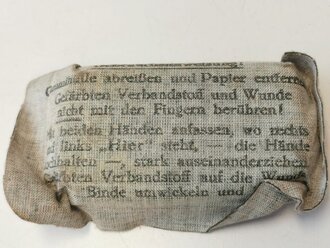 abreißen und Papier entfern
Gefärbten Verbandstoff und Wunde
nicht mit den Fingern berühren!
beiden Händen anfassen, wo rechts
links „Hier" steht, — die Hände
halten —, stark auseinanderziehen
Verbandstoff auf die Wunde
Binde umwickeln und